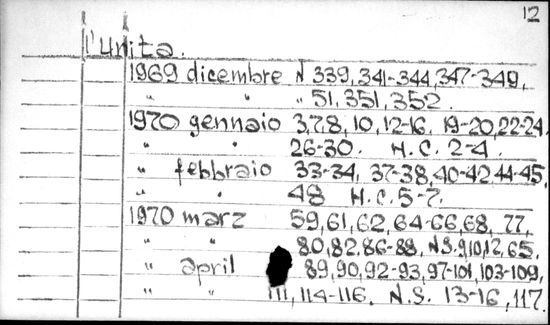 12
l'Unita.
1969 dicembre N 339, 341-344, 347-349,
" " " 51, 351, 352.
1970 gennaio 3,7,8, 10, 12-16, 19-20, 22-24,
" " 26-30. N.C. 2-4.
" febbraio 33-34, 37-38, 40-42, 44-45,
" " 48 N.C. 5-7.
1970 marz 59, 61, 62, 64-66, 68, 77,
" " 80, 82, 86-88, N.S. 9,10,12, 65.
" april 89, 90, 92-93, 97-101, 103-109,
" " 111, 114-116, N.S. 13-16, 117.